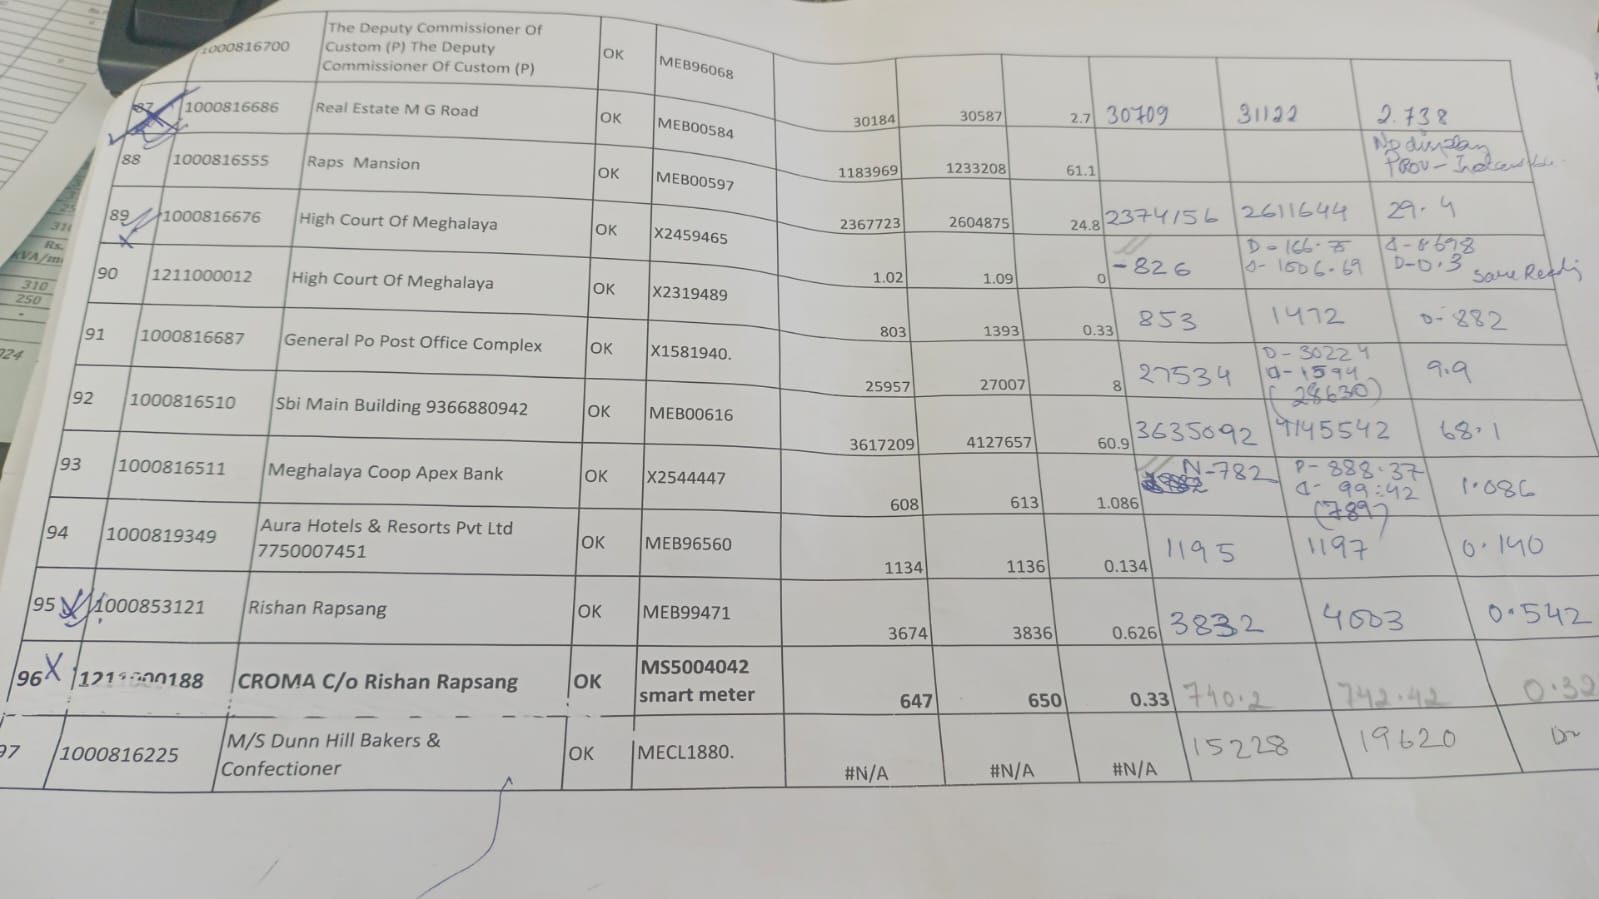 1000816700 The Deputy Commissioner Of
Custom (P) The Deputy
Commissioner Of Custom (P) OK MEB96068 30184 30587 2.7 30709 31122 2.738
87 1000816686 Real Estate M G Road OK MEB00584 1183969 1233208 61.1 No display
Prov-
88 1000816555 Raps Mansion OK MEB00597 2367723 2604875 24.8 2374156 2611644 29.4
89 1000816676 High Court Of Meghalaya OK X2459465 1.02 1.09 0 -826 D-166.75 8698
1006.69 D-0.3 same
90 1211000012 High Court Of Meghalaya OK X2319489 803 1393 0.33 853 1472 0.882
91 1000816687 General Po Post Office Complex OK X1581940. 25957 27007 8 27534 D-30224 9.9
1594
(28630)
92 1000816510 Sbi Main Building 9366880942 OK MEB00616 3617209 4127657 60.9 3635092 4145542 68.1
93 1000816511 Meghalaya Coop Apex Bank OK X2544447 608 613 1.086 N-782 888.37 1.086
99.42
(789)
94 1000819349 Aura Hotels & Resorts Pvt Ltd
7750007451 OK MEB96560 1134 1136 0.134 1195 1197 0.140
95 1000853121 Rishan Rapsang OK MEB99471 3674 3836 0.626 3832 4003 0.542
96 1211000188 CROMA C/o Rishan Rapsang OK MS5004042
smart meter 647 650 0.33 740.2 742.42 0.32
97 1000816225 M/S Dunn Hill Bakers &
Confectioner OK MECL1880. #N/A #N/A #N/A 15228 19620
Rs.
kVA/m
310
250
024